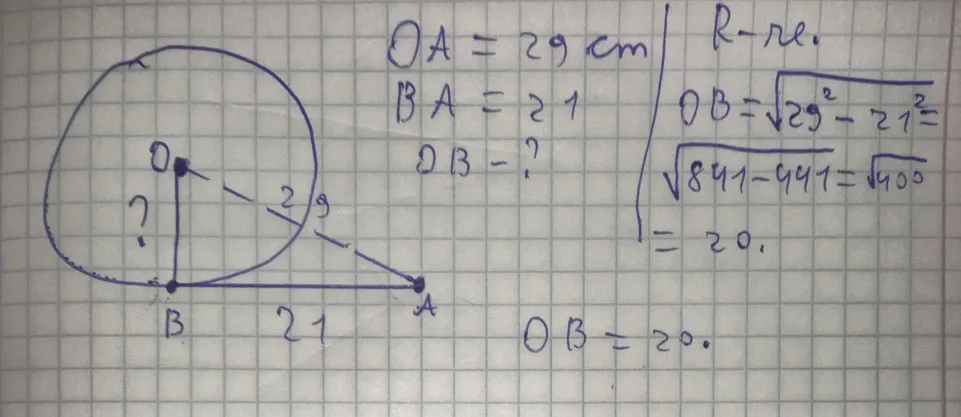 O
?
29
B
21
A
OA = 29 cm
BA = 21
OB - ?
R-re.
OB = √29² - 21² =
√841-441 = √400
= 20.
OB = 20.